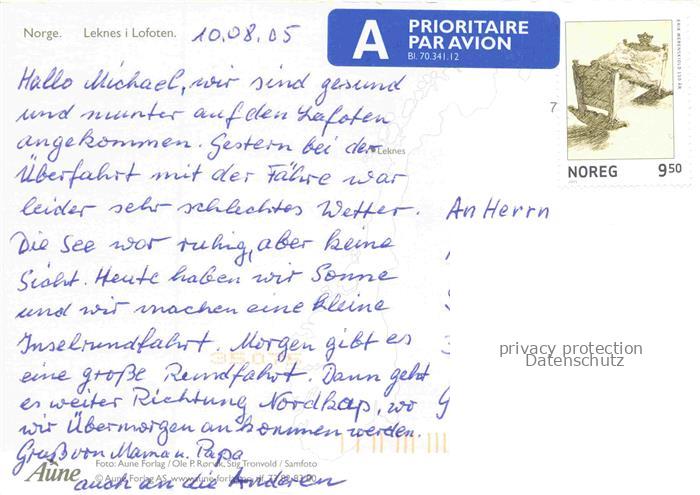 Norge. Leknes i Lofoten. 10.08.05
A PRIORITAIRE
PAR AVION
Bl. 70.341.12
ERIK WERENSKIOLD 150 ÅR
NOREG 9 50
7
Leknes
Hallo Michael, wir sind gesund
und munter auf den Lofoten
angekommen. Gestern bei der
Überfahrt mit der Fähre war
leider sehr schlechtes Wetter.
Die See war ruhig, aber keine
Sicht. Heute haben wir Sonne
und wir machen eine kleine
Inselrundfahrt. Morgen gibt es
eine große Rundfahrt. Dann geht
es weiter Richtung Nordkap, wo
wir Übermorgen ankommen werden.
Gruß von Mama u. Papa
auch an die Anderen
An Herrn
privacy protection
Datenschutz
Aune
Foto: Aune Forlag / Ole P. Rørvik, Stig Tronvold / Samfoto
© Aune Forlag AS, www.aune-forlag.no